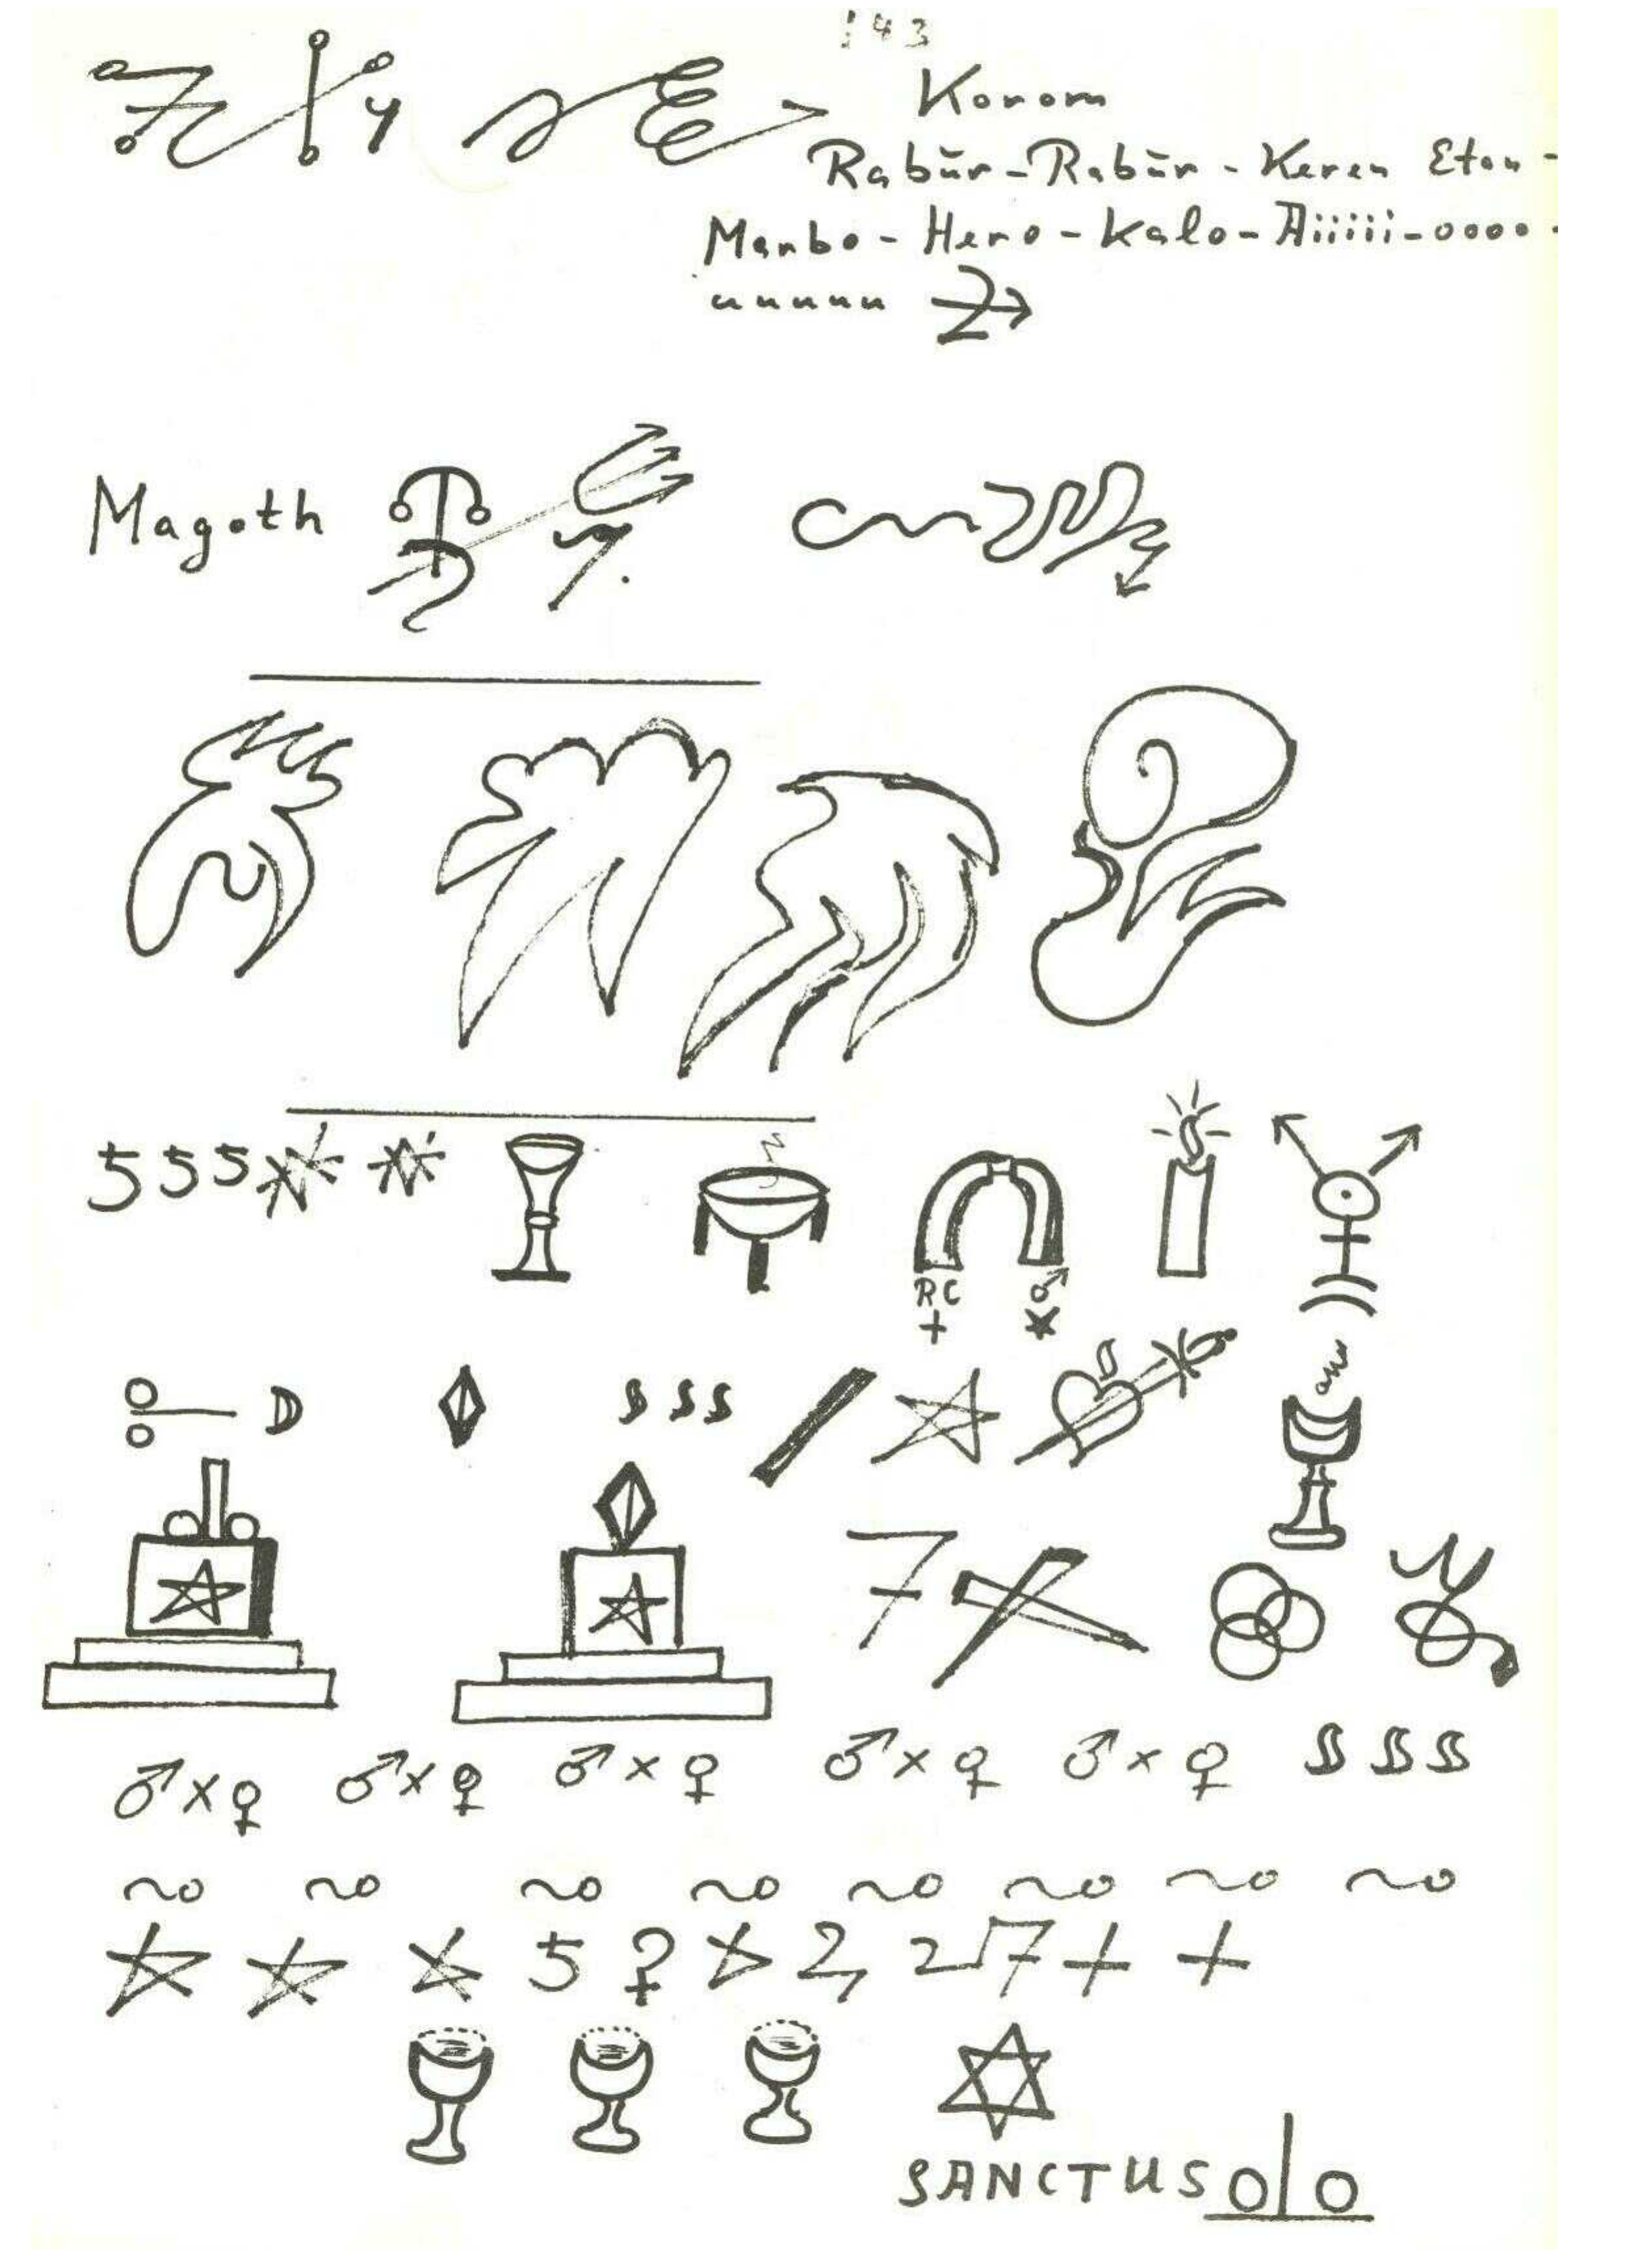 143
Korom
Rabūr-Rabūr-Keren Eton-
Marbo-Hero-Kalo-Aiiiii-oooo.
uuuuu
Magoth
555
RC ♂
+
♂×♀ ♂×♀ ♂×♀ ♂×♀ ♂×♀
5 ♀
7 + +
SANCTUS